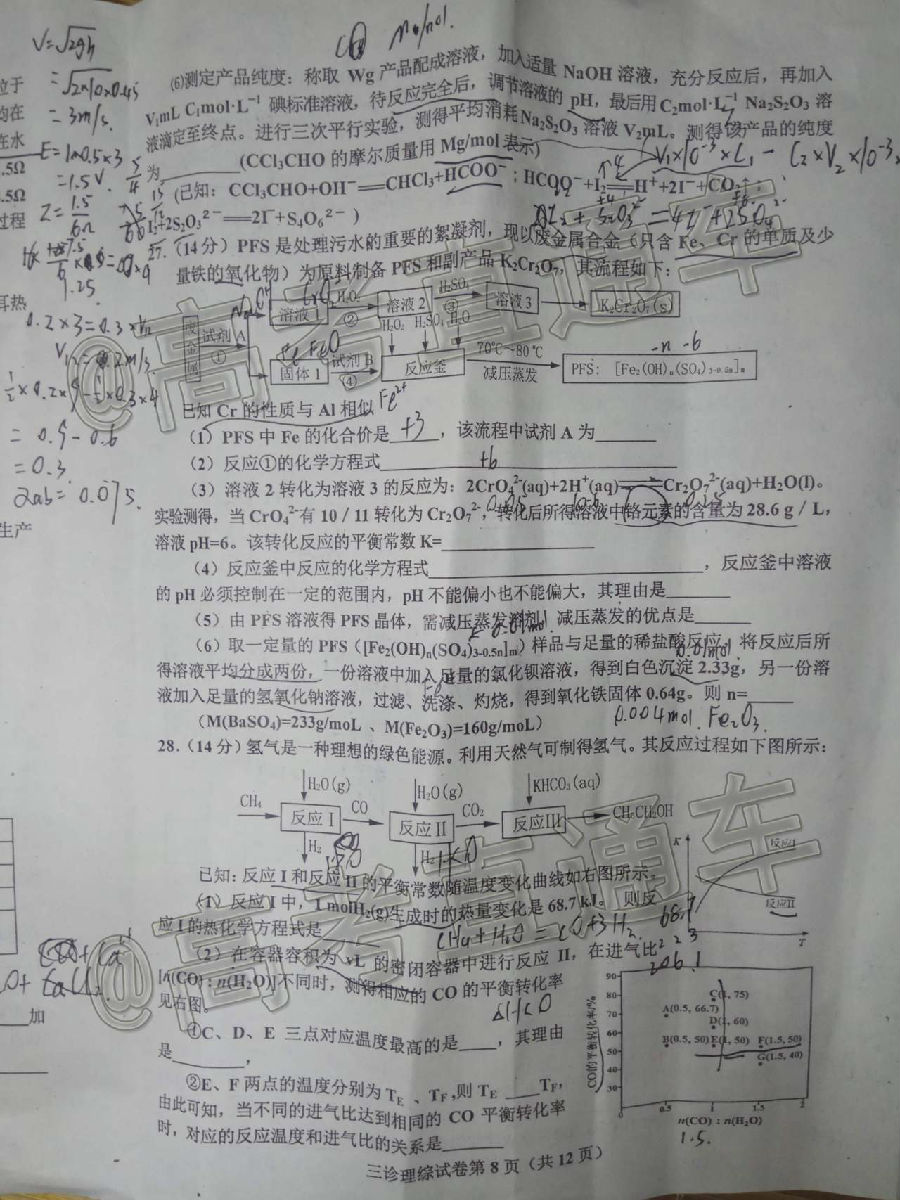 V=√2gh
=√2×10×0.45
=3m/s.
E=1×0.5×3
=1.5V.
位于
均在
在水
.5Ω
.5Ω
过程
耳热
生产
0.2×3=0.3×V2
=0.3
⑹测定产品纯度：称取 Wg 产品配成溶液，加入适量 NaOH 溶液，充分反应后，再加入
V₁mL C₁mol·L⁻¹ 碘标准溶液，待反应完全后，调节溶液的 pH，最后用 C₂mol·L⁻¹ Na₂S₂O₃ 溶
液滴定至终点。进行三次平行实验，测得平均消耗 Na₂S₂O₃ 溶液 V₂mL。测得该产品的纯度
为______(CCl₃CHO 的摩尔质量用 Mg/mol 表示)
(已知：CCl₃CHO+OH⁻══CHCl₃+HCOO⁻；HCOO⁻+I₂══H⁺+2I⁻+CO₂↑；
I₂+2S₂O₃²⁻══2I⁻+S₄O₆²⁻)
27.（14分）PFS 是处理污水的重要的絮凝剂，现以废金属合金（只含 Fe、Cr 的单质及少
量铁的氧化物）为原料制备 PFS 和副产品 K₂Cr₂O₇，其流程如下：
废金属
试剂 A
①
溶液 1
H₂O₂
②
溶液 2
H₂SO₄
③
溶液 3
K₂Cr₂O₇(s)
H₂O₂ H₂SO₄ H₂O
固体 1
试剂 B
④
反应釜
70℃~80℃
减压蒸发
PFS: [Fe₂(OH)ₙ(SO₄)₃₋₀.₅ₙ]ₘ
已知 Cr 的性质与 Al 相似
（1）PFS 中 Fe 的化合价是 +3 ，该流程中试剂 A 为______
（2）反应①的化学方程式______
（3）溶液 2 转化为溶液 3 的反应为：2CrO₄²⁻(aq)+2H⁺(aq)⇌Cr₂O₇²⁻(aq)+H₂O(l)。
实验测得，当 CrO₄²⁻有 10／11 转化为 Cr₂O₇²⁻，转化后所得溶液中铬元素的含量为 28.6 g／L，
溶液 pH=6。该转化反应的平衡常数 K=______
（4）反应釜中反应的化学方程式______，反应釜中溶液
的 pH 必须控制在一定的范围内，pH 不能偏小也不能偏大，其理由是______
（5）由 PFS 溶液得 PFS 晶体，需减压蒸发溶剂，减压蒸发的优点是______
（6）取一定量的 PFS（[Fe₂(OH)ₙ(SO₄)₃₋₀.₅ₙ]ₘ）样品与足量的稀盐酸反应，将反应后所
得溶液平均分成两份，一份溶液中加入足量的氯化钡溶液，得到白色沉淀 2.33g，另一份溶
液加入足量的氢氧化钠溶液，过滤、洗涤、灼烧，得到氧化铁固体 0.64g。则 n=______
（M(BaSO₄)=233g/moL 、M(Fe₂O₃)=160g/moL）
0.004mol. Fe₂O₃
28.（14分）氢气是一种理想的绿色能源。利用天然气可制得氢气。其反应过程如下图所示：
CH₄
H₂O(g)
反应 I
H₂
CO
H₂O(g)
反应 II
H₂
CO₂
KHCO₃(aq)
反应III
CH₃CH₂OH
K
反应I
反应II
T
已知：反应 I 和反应 II 的平衡常数随温度变化曲线如右图所示。
（1）反应 I 中，1 molH₂(g)生成时的热量变化是 68.7 kJ。则反
应 I 的热化学方程式是______
CH₄+H₂O=CO+3H₂
68.7
206.1
（2）在容器容积为 vL 的密闭容器中进行反应 II，在进气比
[n(CO)：n(H₂O)]不同时，测得相应的 CO 的平衡转化率
见右图。
①C、D、E 三点对应温度最高的是____，其理由
是______，
②E、F 两点的温度分别为 T_E 、T_F,则 T_E ___T_F,
由此可知，当不同的进气比达到相同的 CO 平衡转化率
时，对应的反应温度和进气比的关系是______
CO的平衡转化率/%
90
80
70
60
50
40
30
C(1, 75)
A(0.5, 66.7)
D(1, 60)
B(0.5, 50)
E(1, 50)
F(1.5, 50)
G(1.5, 40)
0.5 1 1.5 2
n(CO) : n(H₂O)
1.5.
加
三诊理综试卷第 8 页（共 12 页）
@高考直通车
@高考直通车